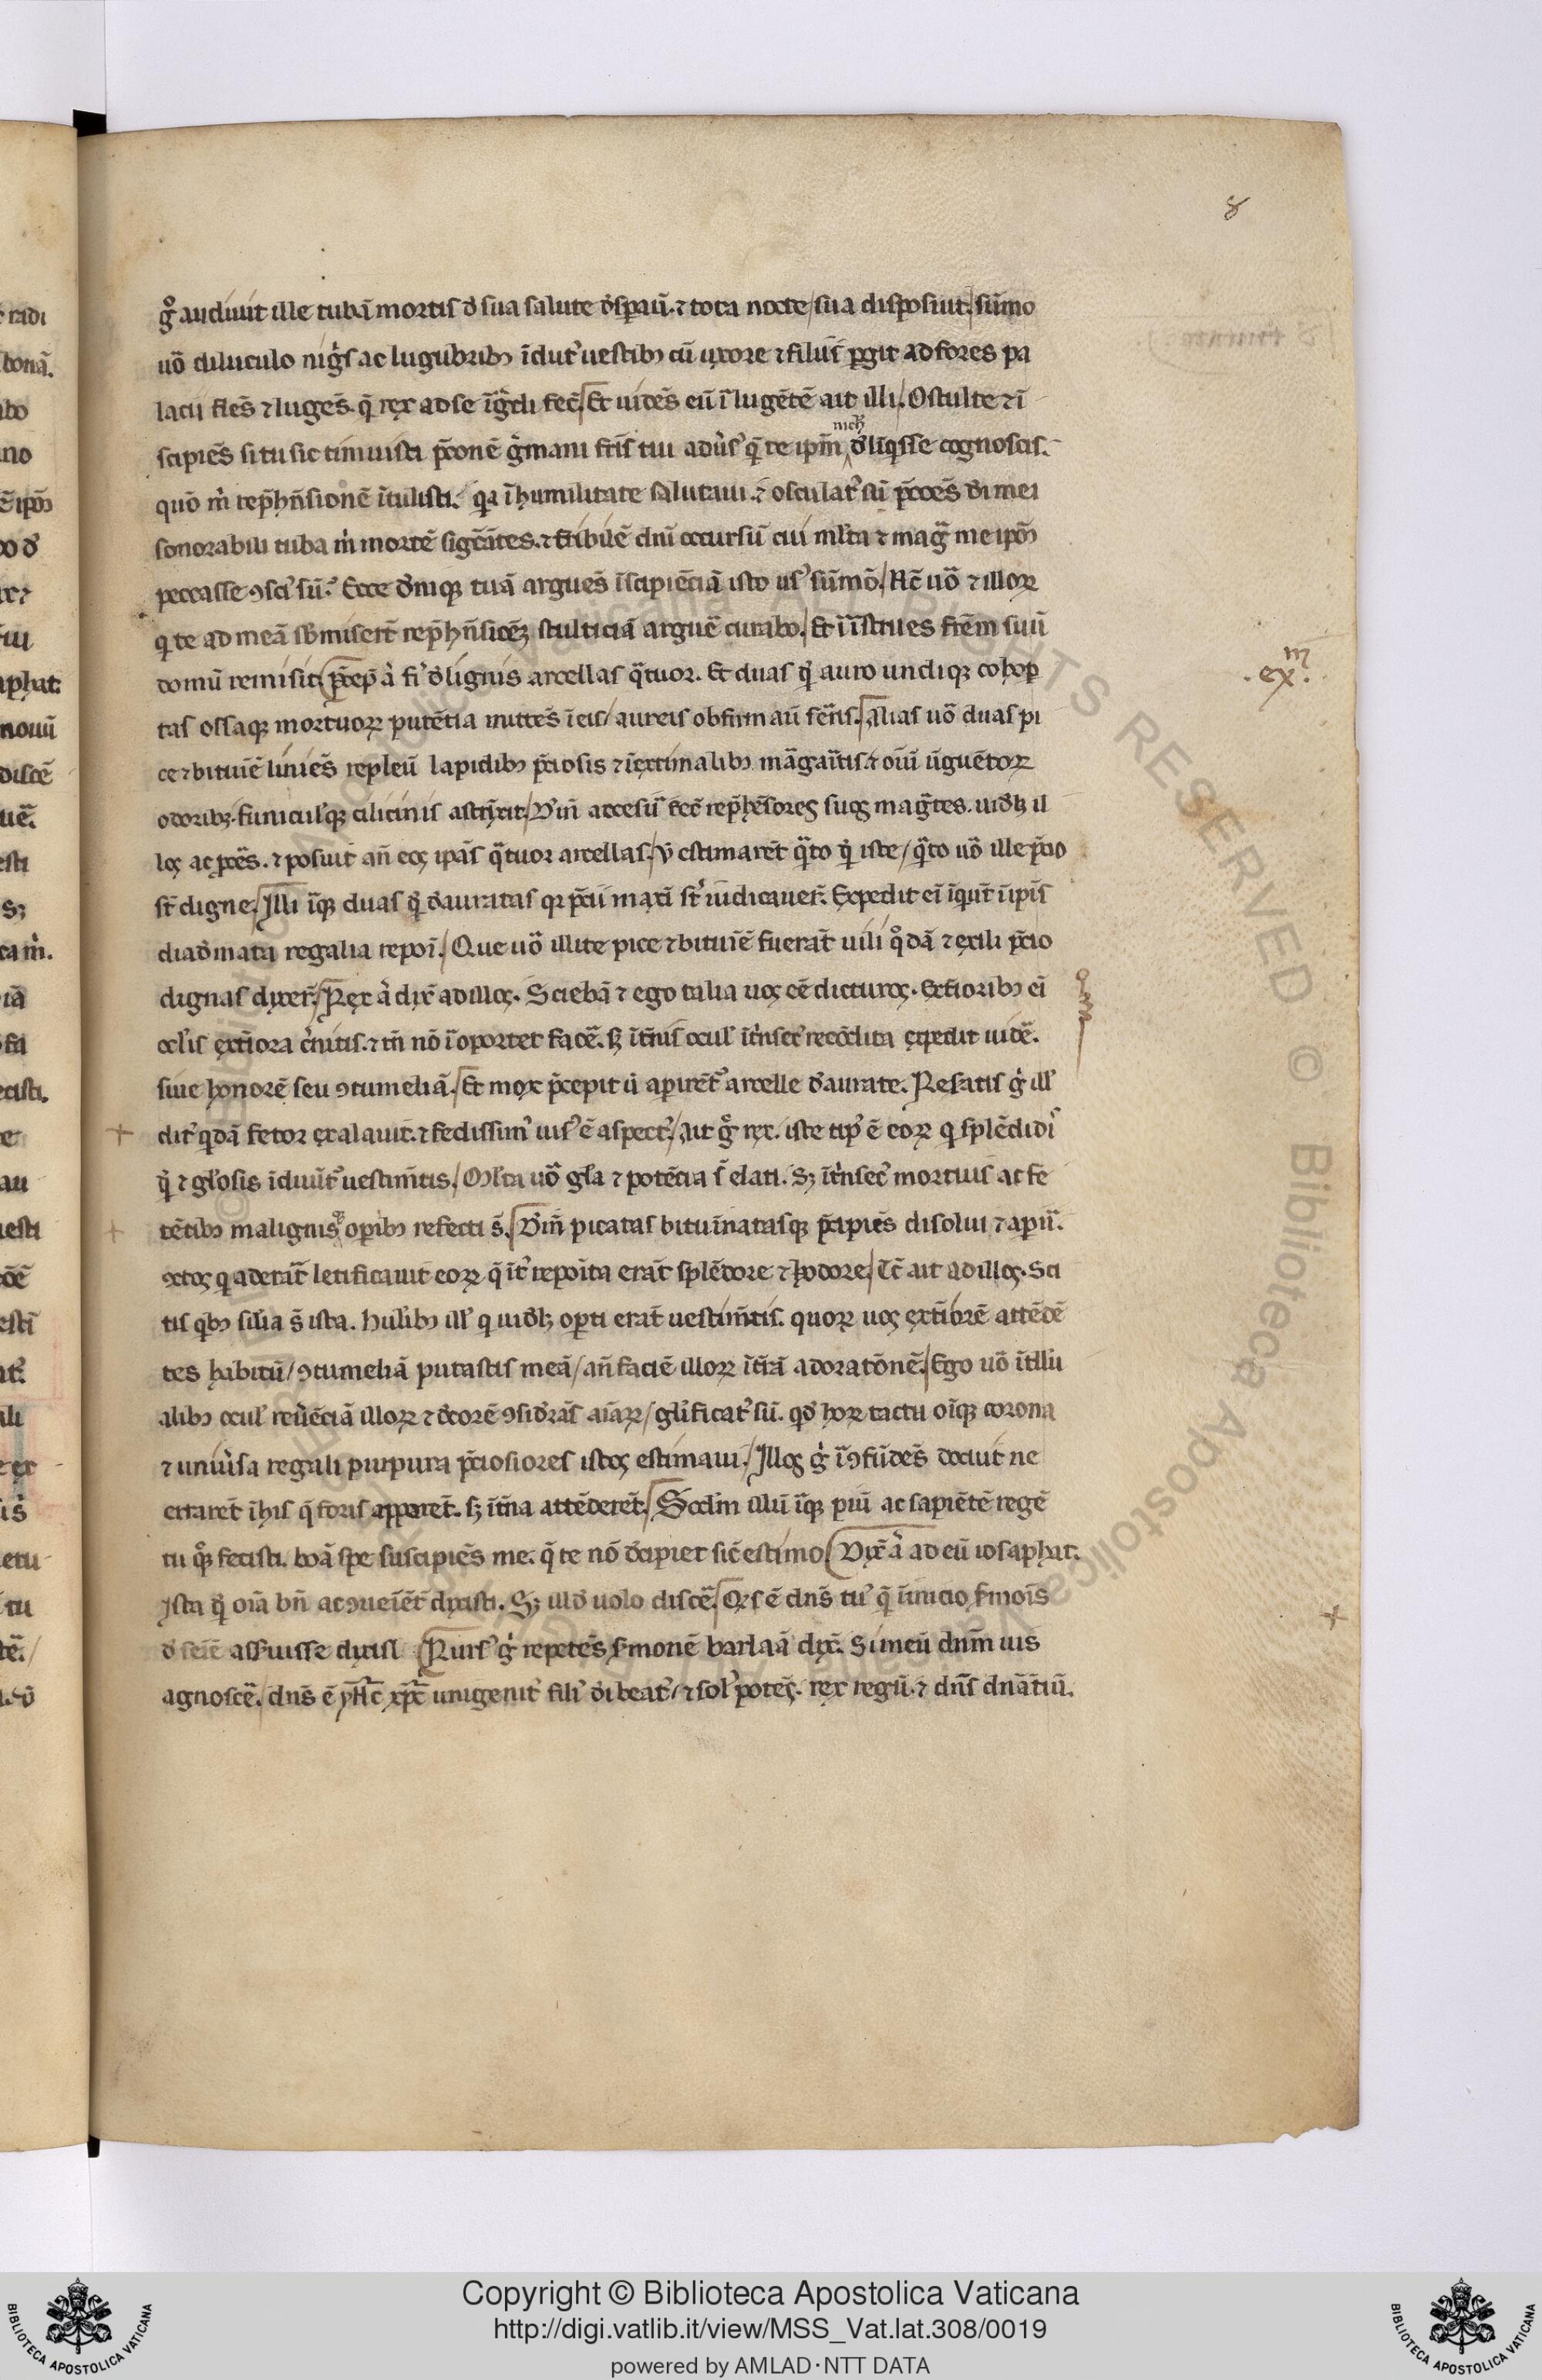 8
g̊ audiuit ille tubã mortis d̓ sua salute d̓spaũ. ⁊ tota nocte / sua disposuit. / sũmo
uõ diluculo nigͥs ac lugubribꝫ ĩdut᷒ uestibꝫ cũ uxore ⁊ filiis ꝑgit ad fores pa
latii flẽs ⁊ lugẽs. q̃ rex ad se ĩgͥdi fec̃. Et uidẽs eũ ĩ lugẽtẽ ait illi. O stulte ⁊ ĩ
nich̃
scipiẽs si tu sic timuisti p̃conẽ gͥmani fr̃is tui adu̓s᷒ q̃ te ip̃m d̓liq̓sse cognoscis.
quõ m̓ rep̃hñsionẽ ĩtulisti. qꝛ ĩ humilitate salutaui. ⁊ osculat᷒ sũ p̃cões d̓i mei
sonorabili tuba m̓ mortẽ sig̃ces. ⁊ t̃ribilẽ dnĩ occursũ cui ml̓ta ⁊ mag̃ me ip̃m
peccasse ꝯsci᷒ sũ. Ecce d̓niqꝫ tuã arguẽs ĩscipiẽciã isto us᷒ sũ mõ. / Nc̃ uõ ⁊ illoꝝ
q te ad meã sb̓miser̃t rep̃hñsionẽ stulticiã arguẽ curabo. / Et ĩĩstrues fr̃em suũ
domũ remisit / p̃cep̃ à fi᷒ d̓ lignis arcellas q̃tuor. Et duas q̓ auro undiqꝫ cohop
tas ossaqꝫ mortuoꝝ putẽtia mittẽs ĩ eis / aureis obfirmaũ ser̃is. Alias uõ duas pi
ex.m
ce ⁊ bitumĩe liniẽs repleũ lapidibꝫ p̃ciosis ⁊ ĩextimalibꝫ mãgaĩtis. ⁊ oĩũ ũguẽtoꝝ
odoribꝫ. funiculisqꝫ cilicinis astrĩxit. / D̓iñ accesũ fec̃ rep̃hẽsores suos mag̃tes. uidꝫ il
los ac p̃cẽs. ⁊ posuit añ eos ip̃as q̃tuor arcellas. / ỷ estimarẽt q̃to q̓ iste / q̃to uõ ille p̃cio
st̃ digne. Illi ĩqꝫ duas q̓ d̓auratas qꝛ p̃cii maxĩ st̓ iudicauer̃. Expedit eĩ ĩqut̃ ũ ip̃is
diad̓mata regalia repoĩ. / Que uõ illite pice ⁊ bituĩe fuerãt uili q̊dã ⁊ exili p̃cio
dignas dixer̃. / Rex à dix̃ ad illos. Sciebã ⁊ ego talia uos eẽ dicturos. Ext̃ioribꝫ eĩ
ocl̓is ext̃iora c̓nitis. ⁊ tñ nõ ĩ oportet facẽ. sꝫ ĩt̃nis ocul᷒ ĩt̓nsec᷒ recõdita expedit uidẽ.
siue honorẽ seu ꝯtumeliã. Et mox p̃cepit ủ aperirẽt᷒ arcelle d̓aurate. Resatis gͥ ill᷒
dit᷒ q̓dã fetor exalauit. ⁊ fedissim᷒ uis᷒ ẽ aspect᷒. / Ait g̊ rex. iste tip᷒ ẽ eoꝝ q splẽdidĩ
q̓ ⁊ gl̓osis ĩduũt᷒ uestim̃tis. / Ml̓ta uõ gl̃a ⁊ potẽcia s̃ elati. Sꝫ ĩt̓nsec᷒ mortuis ac fe
tẽtibꝫ malignisqꝫ opibꝫ refecti s̃. D̓iñ picatas bituĩnatasqꝫ p̃cipiẽs disolui ⁊ apiri.
ꝯctos q aderãt letificauit eoꝝ q̃ ĩt᷒ repoĩta erãt splẽdore ⁊ odore. / Tc̃ ait ad illos. Sci
tis qͥbꝫ sil̓ia s̃ ista. Huil̓ibꝫ ill᷒ q uidꝫ opti erãt uestim̃tis. quoꝝ uos ext̃iorẽ attẽdẽ
tes habitũ / ꝯtumeliã putastis meã / añ faciẽ illoꝝ ĩt̃rã adoratõnẽ. / Ego uõ ĩtll̓u
alibꝫ ocul᷒ reũẽciã illoꝝ ⁊ d̓corẽ ꝯsid̓rãs aĩaꝝ / gl̓ificat᷒ sũ. qd̓ hoꝝ tactu oĩqꝫ corona
⁊ uniu̓sa regali purpura p̃ciosiores istos estimaui. / Illos gͥ ĩꝯfũdẽs docuit ne
errarẽt ĩ his q̃ foris apparẽt. sꝫ ĩt̃na attẽderẽt. Scd̓m illũ ĩqꝫ piũ ac sapiẽtẽ regẽ
tu qͣꝫ fecisti. boã spe suscipiẽs me. q̃ te nõ d̓cipiet sic̃ estimo / Dix̃ à ad eũ iosaphat.
Ista q̓ oĩa bñ ac ꝯueĩẽt̃ dixisti. Sꝫ illd̓ uolo discẽ. Qͥs ẽ dnṡ tu᷒ q̃ ĩ inicio s̓moĩs
d̓ seĩe asseuisse dixisti Rurs᷒ gͥ repetẽs s̓monẽ barlaã dix̃. Si meũ dnm̃ uis
agnoscẽ. / dnṡ ẽ yħc xp̃c unigenit᷒ fili᷒ d̓i beat᷒ ⁊ sol᷒ potẽs. rex regũ. ⁊ dnṡ dnãtiũ.
Copyright © Biblioteca Apostolica Vaticana
http://digi.vatlib.it/view/MSS_Vat.lat.308/0019
powered by AMLAD·NTT DATA